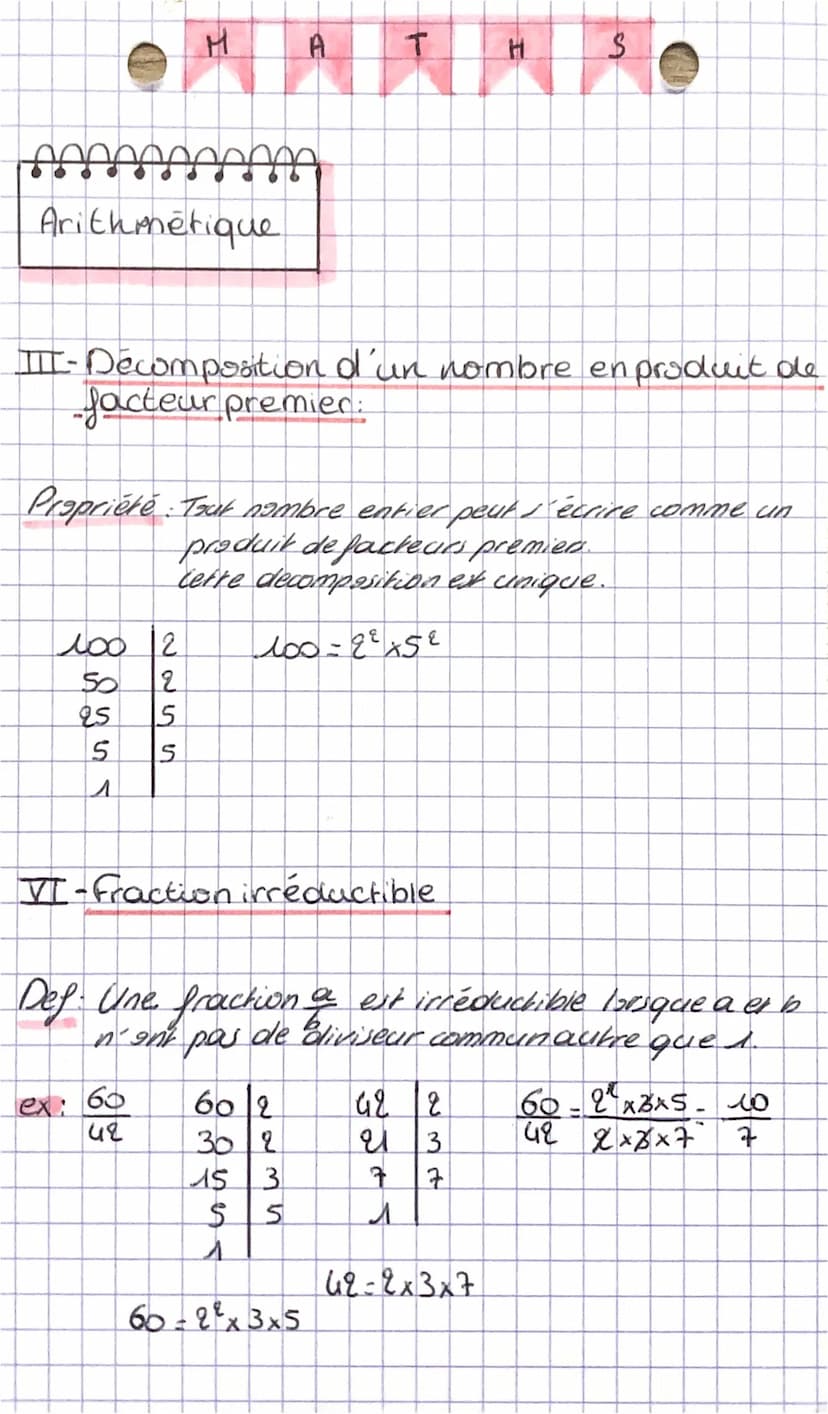 M A T H S
Arithmétique
III - Décomposition d'un nombre en produit de
facteur premier :
Propriété : Tout nombre entier peut s'écrire comme un
produit de facteurs premiers.
Cette decomposition est unique.
100 | 2 100 = 2² x 5²
50 | 2
25 | 5
5 | 5
1 |
VI - Fraction irréductible
Def : Une fraction a/b est irréductible lorsque a et b
n'ont pas de diviseur commun autre que 1.
ex : 60/42 60 | 2 42 | 2 60/42 = 2² x 3 x 5 / 2 x 3 x 7 = 10/7
30 | 2 21 | 3
15 | 3 7 | 7
5 | 5 1 |
1 |
42 = 2 x 3 x 7
60 = 2² x 3 x 5